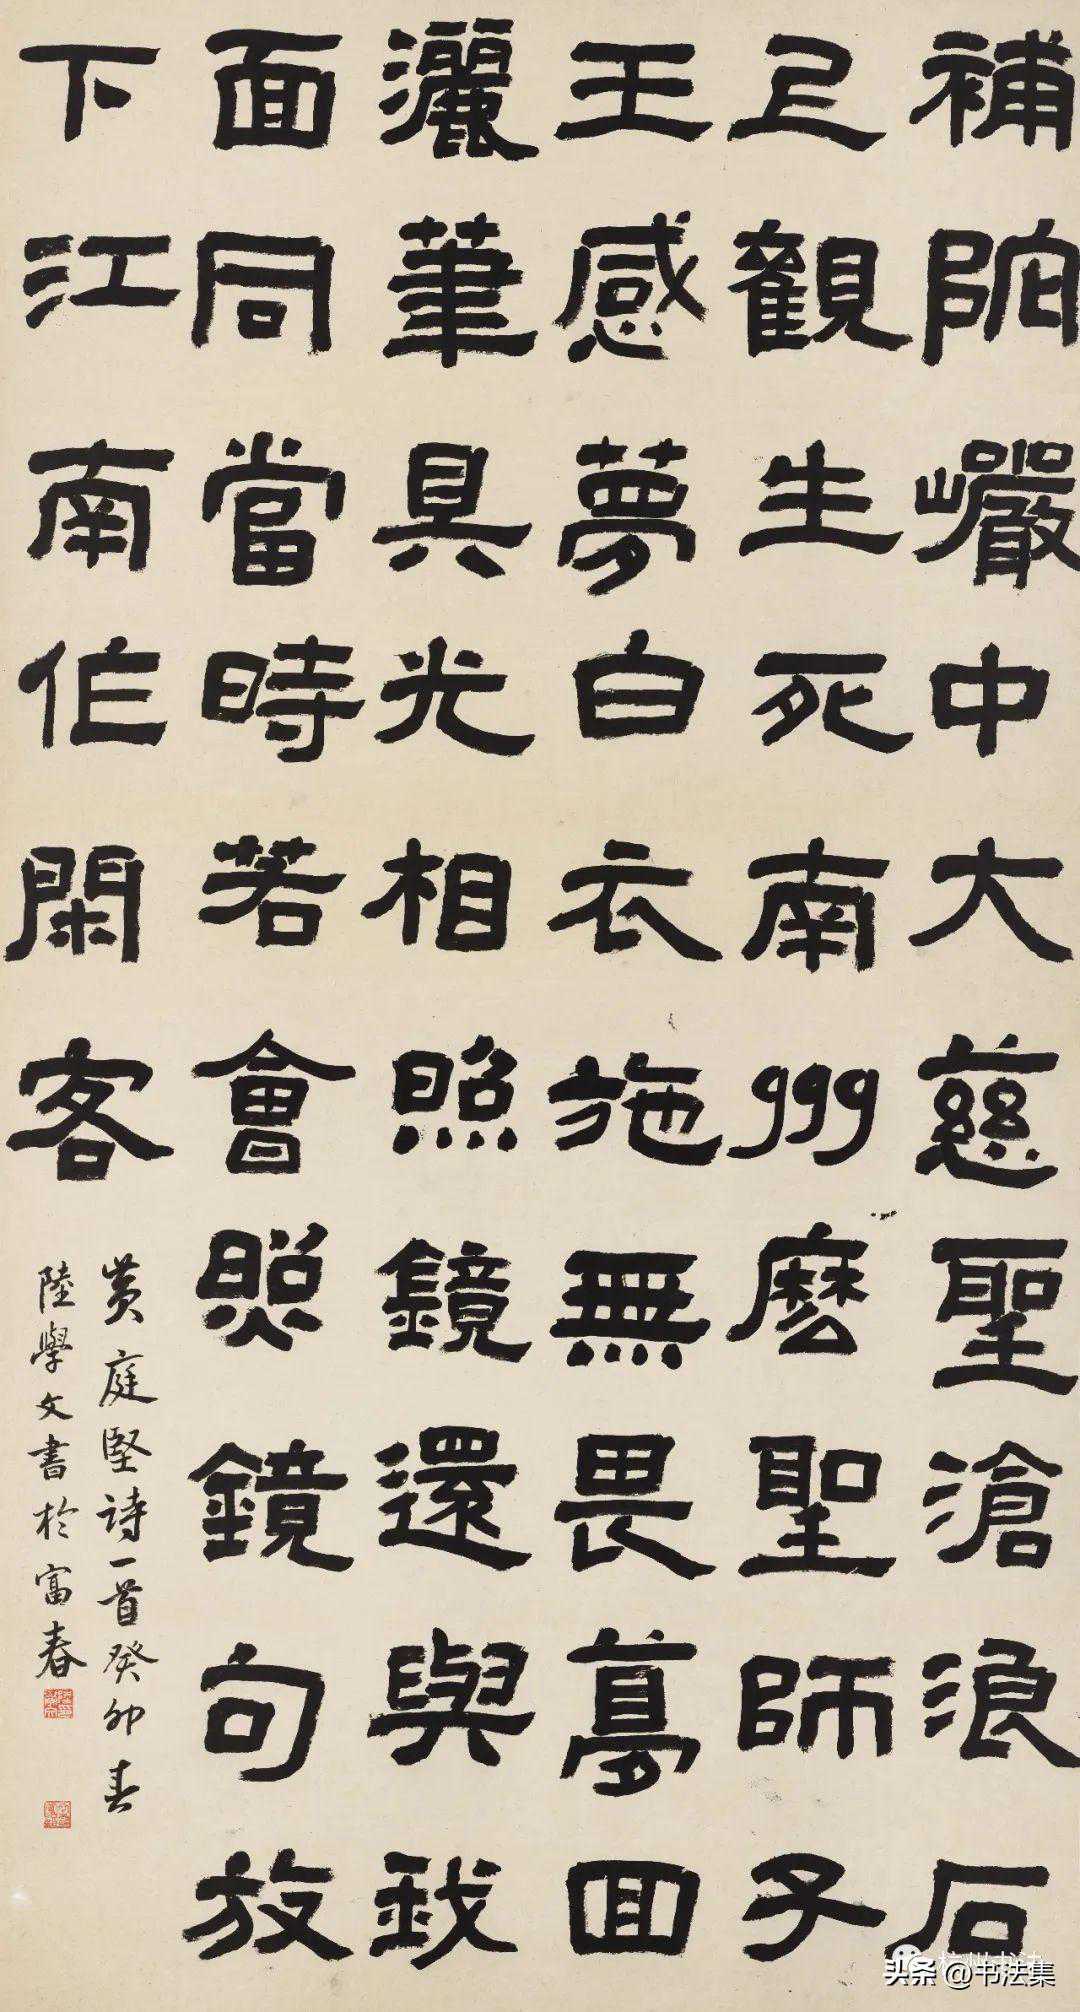 補陀巗中大慈聖滄浪石
上觀生死南州麽聖師子
王感夢白衣施無畏夢回
灑筆具光相照鏡還與我
面同當時若會照鏡句放
下江南作閑客
黄庭堅詩一首癸卯春
陸學文書於富春
杭州书法
头条@书法集